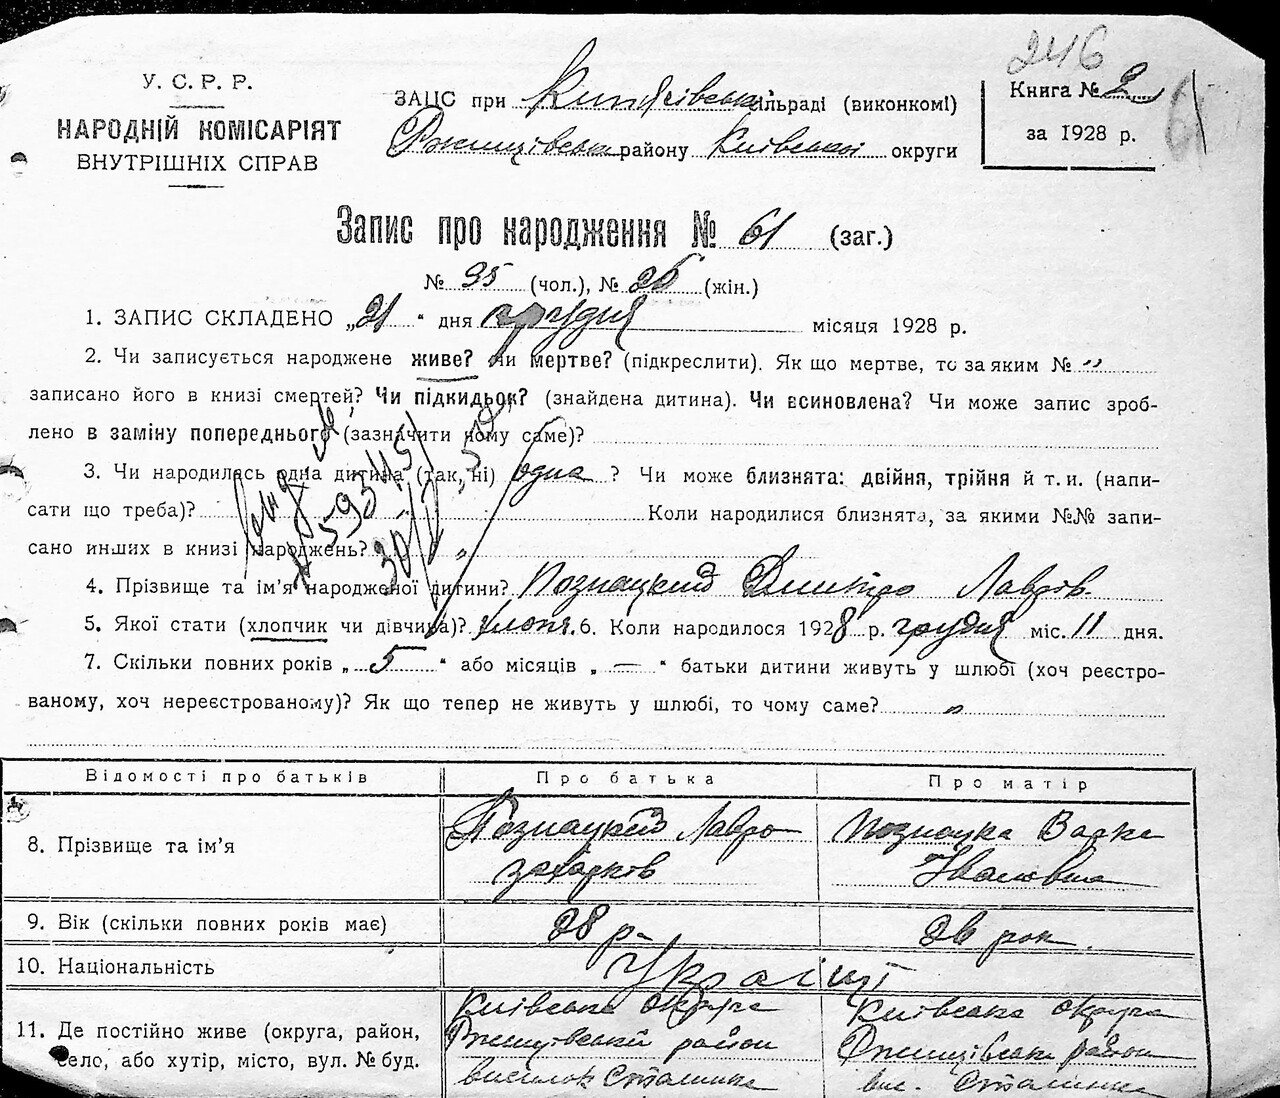 246
У. С. Р. Р.
НАРОДНІЙ КОМІСАРІЯТ
ВНУТРІШНІХ СПРАВ
ЗАЦС при сільраді (виконкомі)
Ржищівськ району Київської округи
Книга № 2
за 1928 р.
61
Запис про народження № 61 (заг.)
№ 35 (чол.), № 26 (жін.)
1. ЗАПИС СКЛАДЕНО „21" дня грудня місяця 1928 р.
2. Чи записується народжене живе? чи мертве? (підкреслити). Як що мертве, то за яким № "
записано його в книзі смертей? Чи підкидьок? (знайдена дитина). Чи всиновлена? Чи може запис зроб-
лено в заміну попереднього (зазначити чому саме)?
3. Чи народилась одна дитина (так, ні) одна ? Чи може близнята: двійня, трійня й т. и. (напи-
сати що треба)? Коли народилися близнята, за якими №№ запи-
сано инших в книзі народжень? "
4. Прізвище та ім'я народженої дитини? Познацкий Дмитро Лаврів.
5. Якої стати (хлопчик чи дівчина)? хлопч. 6. Коли народилося 1928 р. грудня міс. 11 дня.
7. Скільки повних років „ 5 " або місяців „ — " батьки дитини живуть у шлюбі (хоч реєстро-
ваному, хоч нереєстрованому)? Як що тепер не живуть у шлюбі, то чому саме? "
Відомості про батьків Про батька Про матір
8. Прізвище та ім'я Познацкий Лавро Познацка
Івановна
9. Вік (скільки повних років має) 28 р. 26 рок.
10. Національність Украінці
11. Де постійно живе (округа, район, село, або хутір, місто, вул. № буд.
Київська округа Київська округа
Ржищівський район Ржищівськ район
висилок Сталинка вис. Сталинка